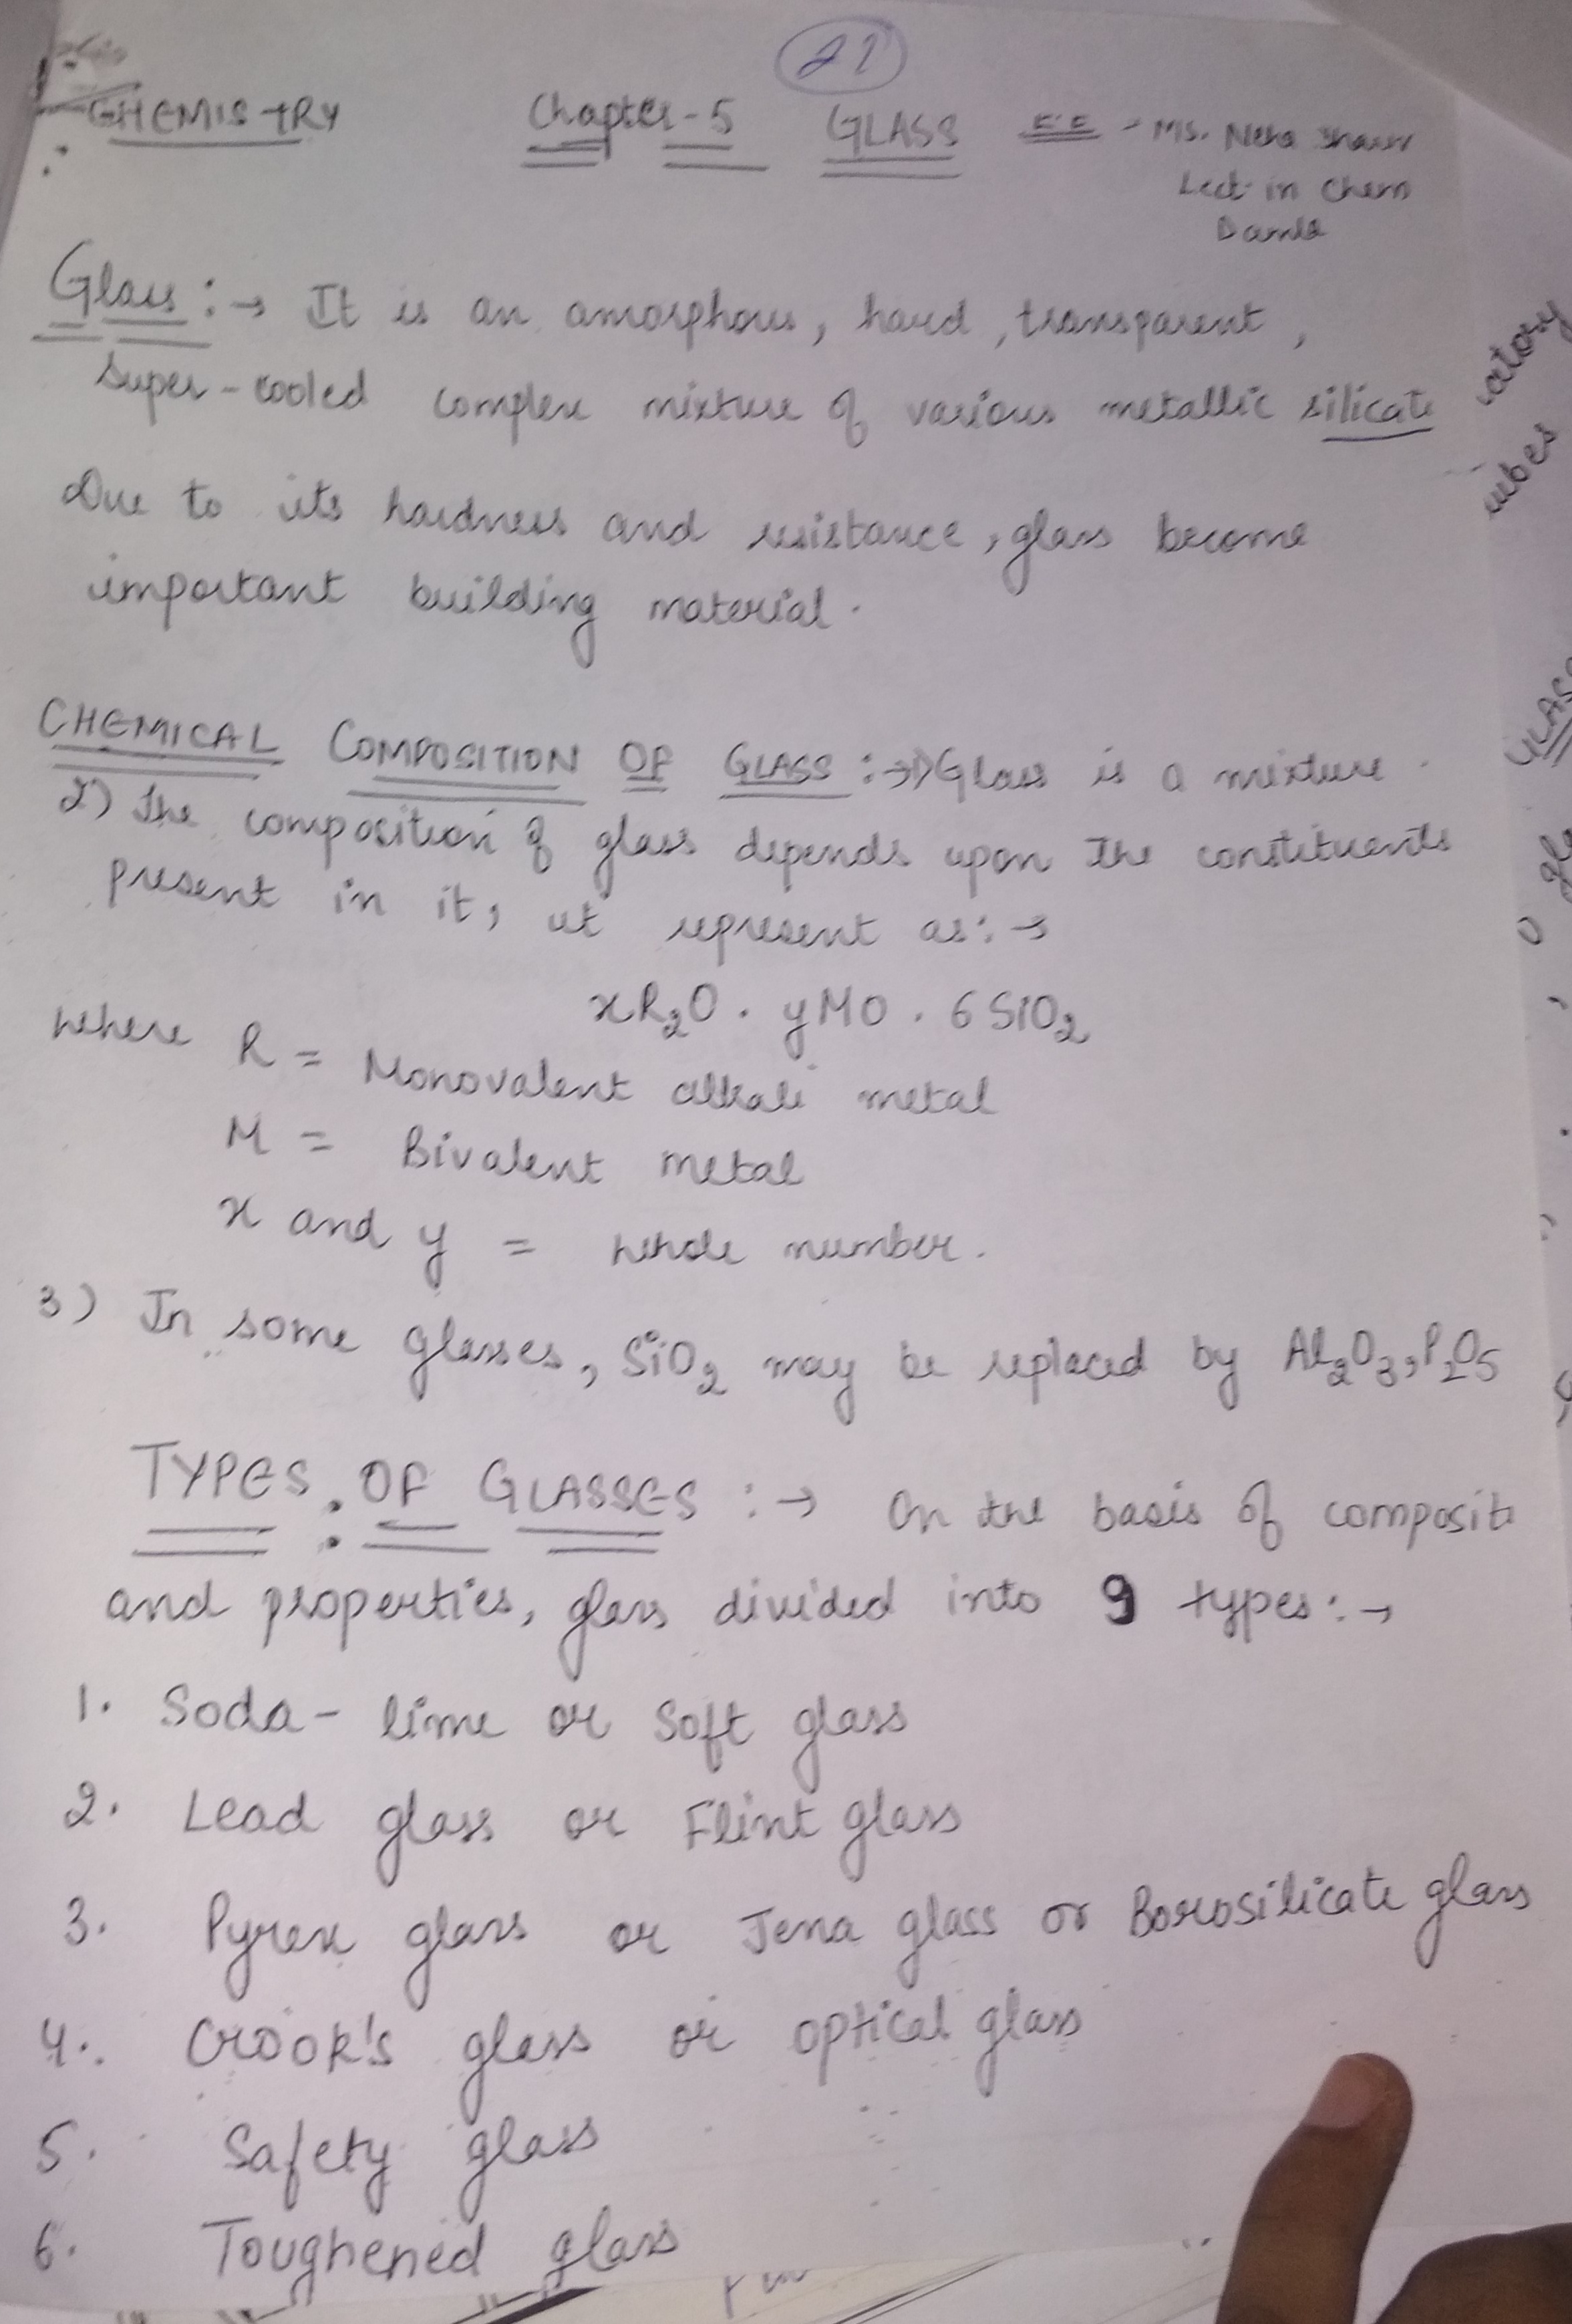 21
CHEMISTRY Chapter-5 GLASS E.E - MS. Neha
Lect. in Chem
Glass :→ It is an amorphous, hard, transparent,
super-cooled complex mixture of various metallic silicate
Due to its hardness and resistance, glass become
important building material.
CHEMICAL COMPOSITION OF GLASS :→ 1) Glass is a mixture.
2) The composition of glass depends upon the constituents
present in it, it represent as :→
xR₂O . yMO . 6SiO₂
where R = Monovalent alkali metal
M = Bivalent metal
x and y = whole number.
3) In some glasses, SiO₂ may be replaced by Al₂O₃, P₂O₅
TYPES OF GLASSES :→ On the basis of composit
and properties, glass divided into 9 types :→
1. Soda-lime or Soft glass
2. Lead glass or Flint glass
3. Pyrex glass or Jena glass or Borosilicate glass
4. Crook's glass or optical glass
5. Safety glass
6. Toughened glass